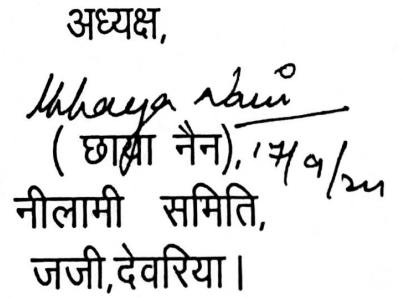 अध्यक्ष,
Chhaya Nain
( छाया नैन), 17/9/24
नीलामी समिति,
जजी,देवरिया।